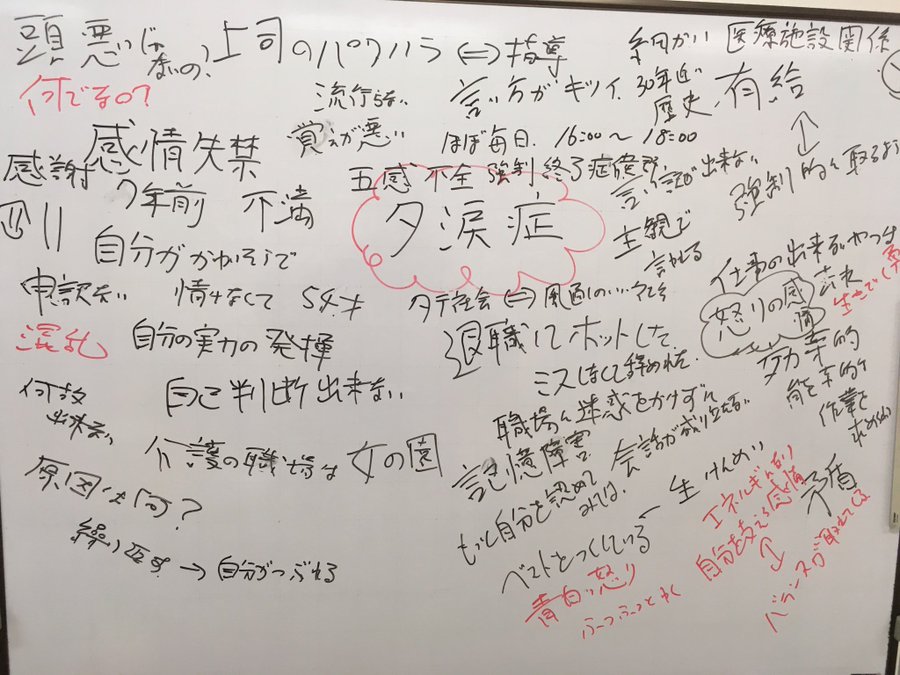 頭悪いじゃないの? 上司のパワハラ ⇔ 指導
細かい 医療施設関係
何でなの?
流行らない
言い方がキツイ、30年近い歴史、有給
覚えが悪い
ほぼ毎日、16:00〜18:00
感謝 感情失禁
五感不全 強制終了症候群
言い返せが出来ない
強制的に取るよう
7年前 不満
夕涙症
主観で
言われる
自分がかわいそうで
仕事の出来るやつは
申訳ない 情けなくて 54才
タテ社会 ⇔
怒りの感情
混乱 自分の実力の発揮
退職してホットした
効率的
ミスしなくて辞めれた
能率的
作業を
求められ
何故
出来ない
自己判断出来ない
職場に迷惑をかけずに
介護の職場は女の園
記憶障害 会話が成り立たない
原因は何?
もっと自分を認めて
みては、
矛盾
繰り返す → 自分がつぶれる
ベストをつくしている ← 一生けんめい
エネルギーになり
自分を支える感情
バランスが取れてくる
青白い怒り
ふつふつとわく